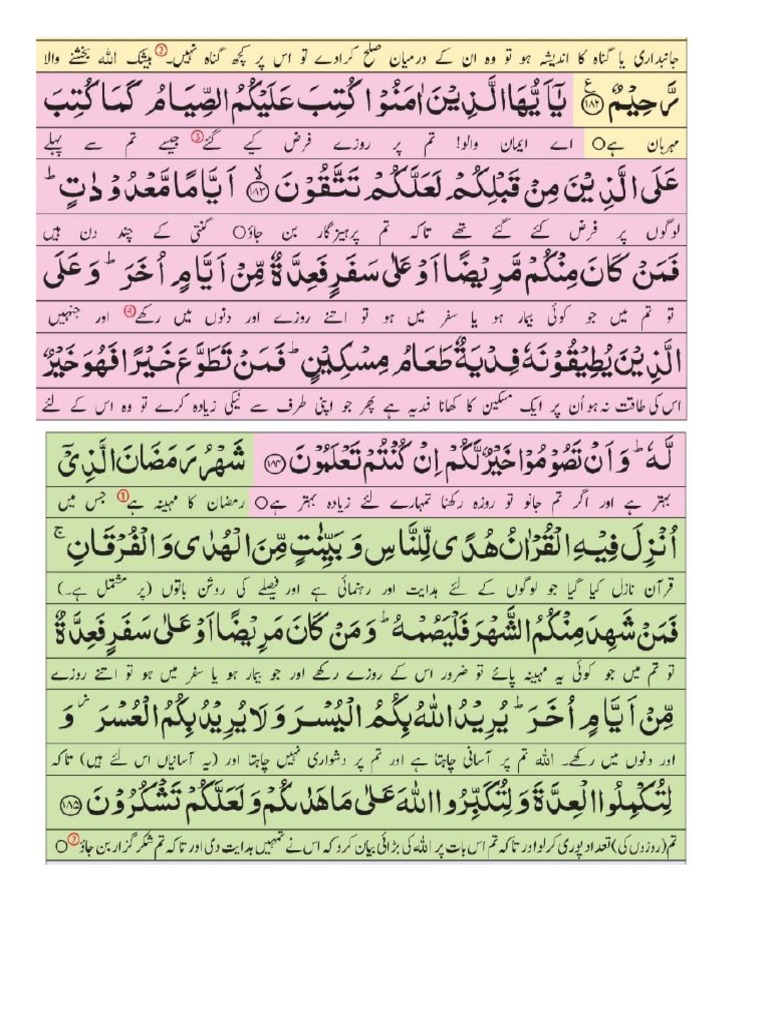 جانبداری یا گناہ کا اندیشہ ہو تو وہ ان کے درمیان صلح کرادے تو اس پر کچھ گناہ نہیں۔② بیشک اللہ بخشنے والا
رَّحِیْمٌ ﴿۱۸۲﴾ ع یٰۤاَیُّهَا الَّذِیْنَ اٰمَنُوْا كُتِبَ عَلَیْكُمُ الصِّیَامُ كَمَا كُتِبَ
مہربان ہے○ اے ایمان والو! تم پر روزے فرض کیے گئے③ جیسے تم سے پہلے
عَلَى الَّذِیْنَ مِنْ قَبْلِكُمْ لَعَلَّكُمْ تَتَّقُوْنَ ﴿۱۸۳﴾ۙ اَیَّامًا مَّعْدُوْدٰتٍؕ
لوگوں پر فرض کئے گئے تھے تاکہ تم پرہیزگار بن جاؤ○ گنتی کے چند دن ہیں
فَمَنْ كَانَ مِنْكُمْ مَّرِیْضًا اَوْ عَلٰى سَفَرٍ فَعِدَّةٌ مِّنْ اَیَّامٍ اُخَرَؕ وَ عَلَى
تو تم میں جو کوئی بیمار ہو یا سفر میں ہو تو اتنے روزے اور دنوں میں رکھے④ اور جنہیں
الَّذِیْنَ یُطِیْقُوْنَهٗ فِدْیَةٌ طَعَامُ مِسْكِیْنٍؕ فَمَنْ تَطَوَّعَ خَیْرًا فَهُوَ خَیْرٌ
اس کی طاقت نہ ہو اُن پر ایک مسکین کا کھانا فدیہ ہے پھر جو اپنی طرف سے نیکی زیادہ کرے تو وہ اس کے لئے
لَّهٗؕ وَ اَنْ تَصُوْمُوْا خَیْرٌ لَّكُمْ اِنْ كُنْتُمْ تَعْلَمُوْنَ ﴿۱۸۴﴾ شَهْرُ رَمَضَانَ الَّذِیْۤ
بہتر ہے اور اگر تم جانو تو روزہ رکھنا تمہارے لئے زیادہ بہتر ہے○ رمضان کا مہینہ ہے① جس میں
اُنْزِلَ فِیْهِ الْقُرْاٰنُ هُدًى لِّلنَّاسِ وَ بَیِّنٰتٍ مِّنَ الْهُدٰى وَ الْفُرْقَانِۚ
قرآن نازل کیا گیا جو لوگوں کے لئے ہدایت اور رہنمائی ہے اور فیصلے کی روشن باتوں (پر مشتمل ہے۔)
فَمَنْ شَهِدَ مِنْكُمُ الشَّهْرَ فَلْیَصُمْهُؕ وَ مَنْ كَانَ مَرِیْضًا اَوْ عَلٰى سَفَرٍ فَعِدَّةٌ
تو تم میں جو کوئی یہ مہینہ پائے تو ضرور اس کے روزے رکھے اور جو بیمار ہو یا سفر میں ہو تو اتنے روزے
مِّنْ اَیَّامٍ اُخَرَؕ یُرِیْدُ اللّٰهُ بِكُمُ الْیُسْرَ وَ لَا یُرِیْدُ بِكُمُ الْعُسْرَ٘ وَ
اور دنوں میں رکھے۔ اللہ تم پر آسانی چاہتا ہے اور تم پر دشواری نہیں چاہتا اور (یہ آسانیاں اس لئے ہیں) تاکہ
لِتُكْمِلُوا الْعِدَّةَ وَ لِتُكَبِّرُوا اللّٰهَ عَلٰى مَا هَدٰىكُمْ وَ لَعَلَّكُمْ تَشْكُرُوْنَ ﴿۱۸۵﴾
تم (روزوں کی) تعداد پوری کرلو اور تاکہ تم اس بات پر اللہ کی بڑائی بیان کرو کہ اس نے تمہیں ہدایت دی اور تاکہ تم شکر گزار بن جاؤ②○